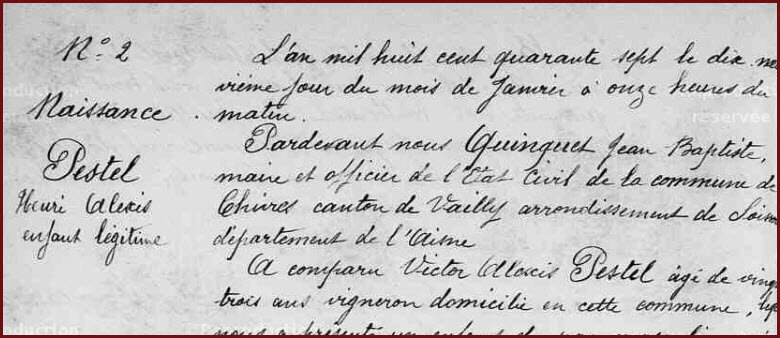 N° 2
Naissance
Pestel
Henri Alexis
enfant légitime
L'an mil huit cent quarante sept le dix neu
vième jour du mois de Janvier à onze heures du
matin.
Pardevant nous Quinquet Jean Baptiste,
maire et officier de l'Etat Civil de la commune de
Chivres canton de Vailly arrondissement de Soisson
département de l'Aisne
A comparu Victor Alexis Pestel âgé de vingt
trois ans vigneron domicilié en cette commune,
nous a présenté un enfant du